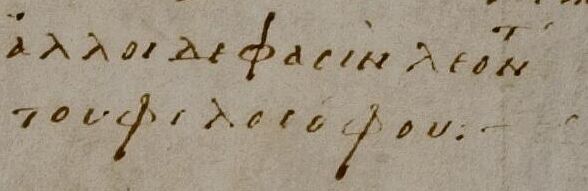 ἄλλοι δέ φασιν λέοντ
τοῦ φιλοσόφου:-